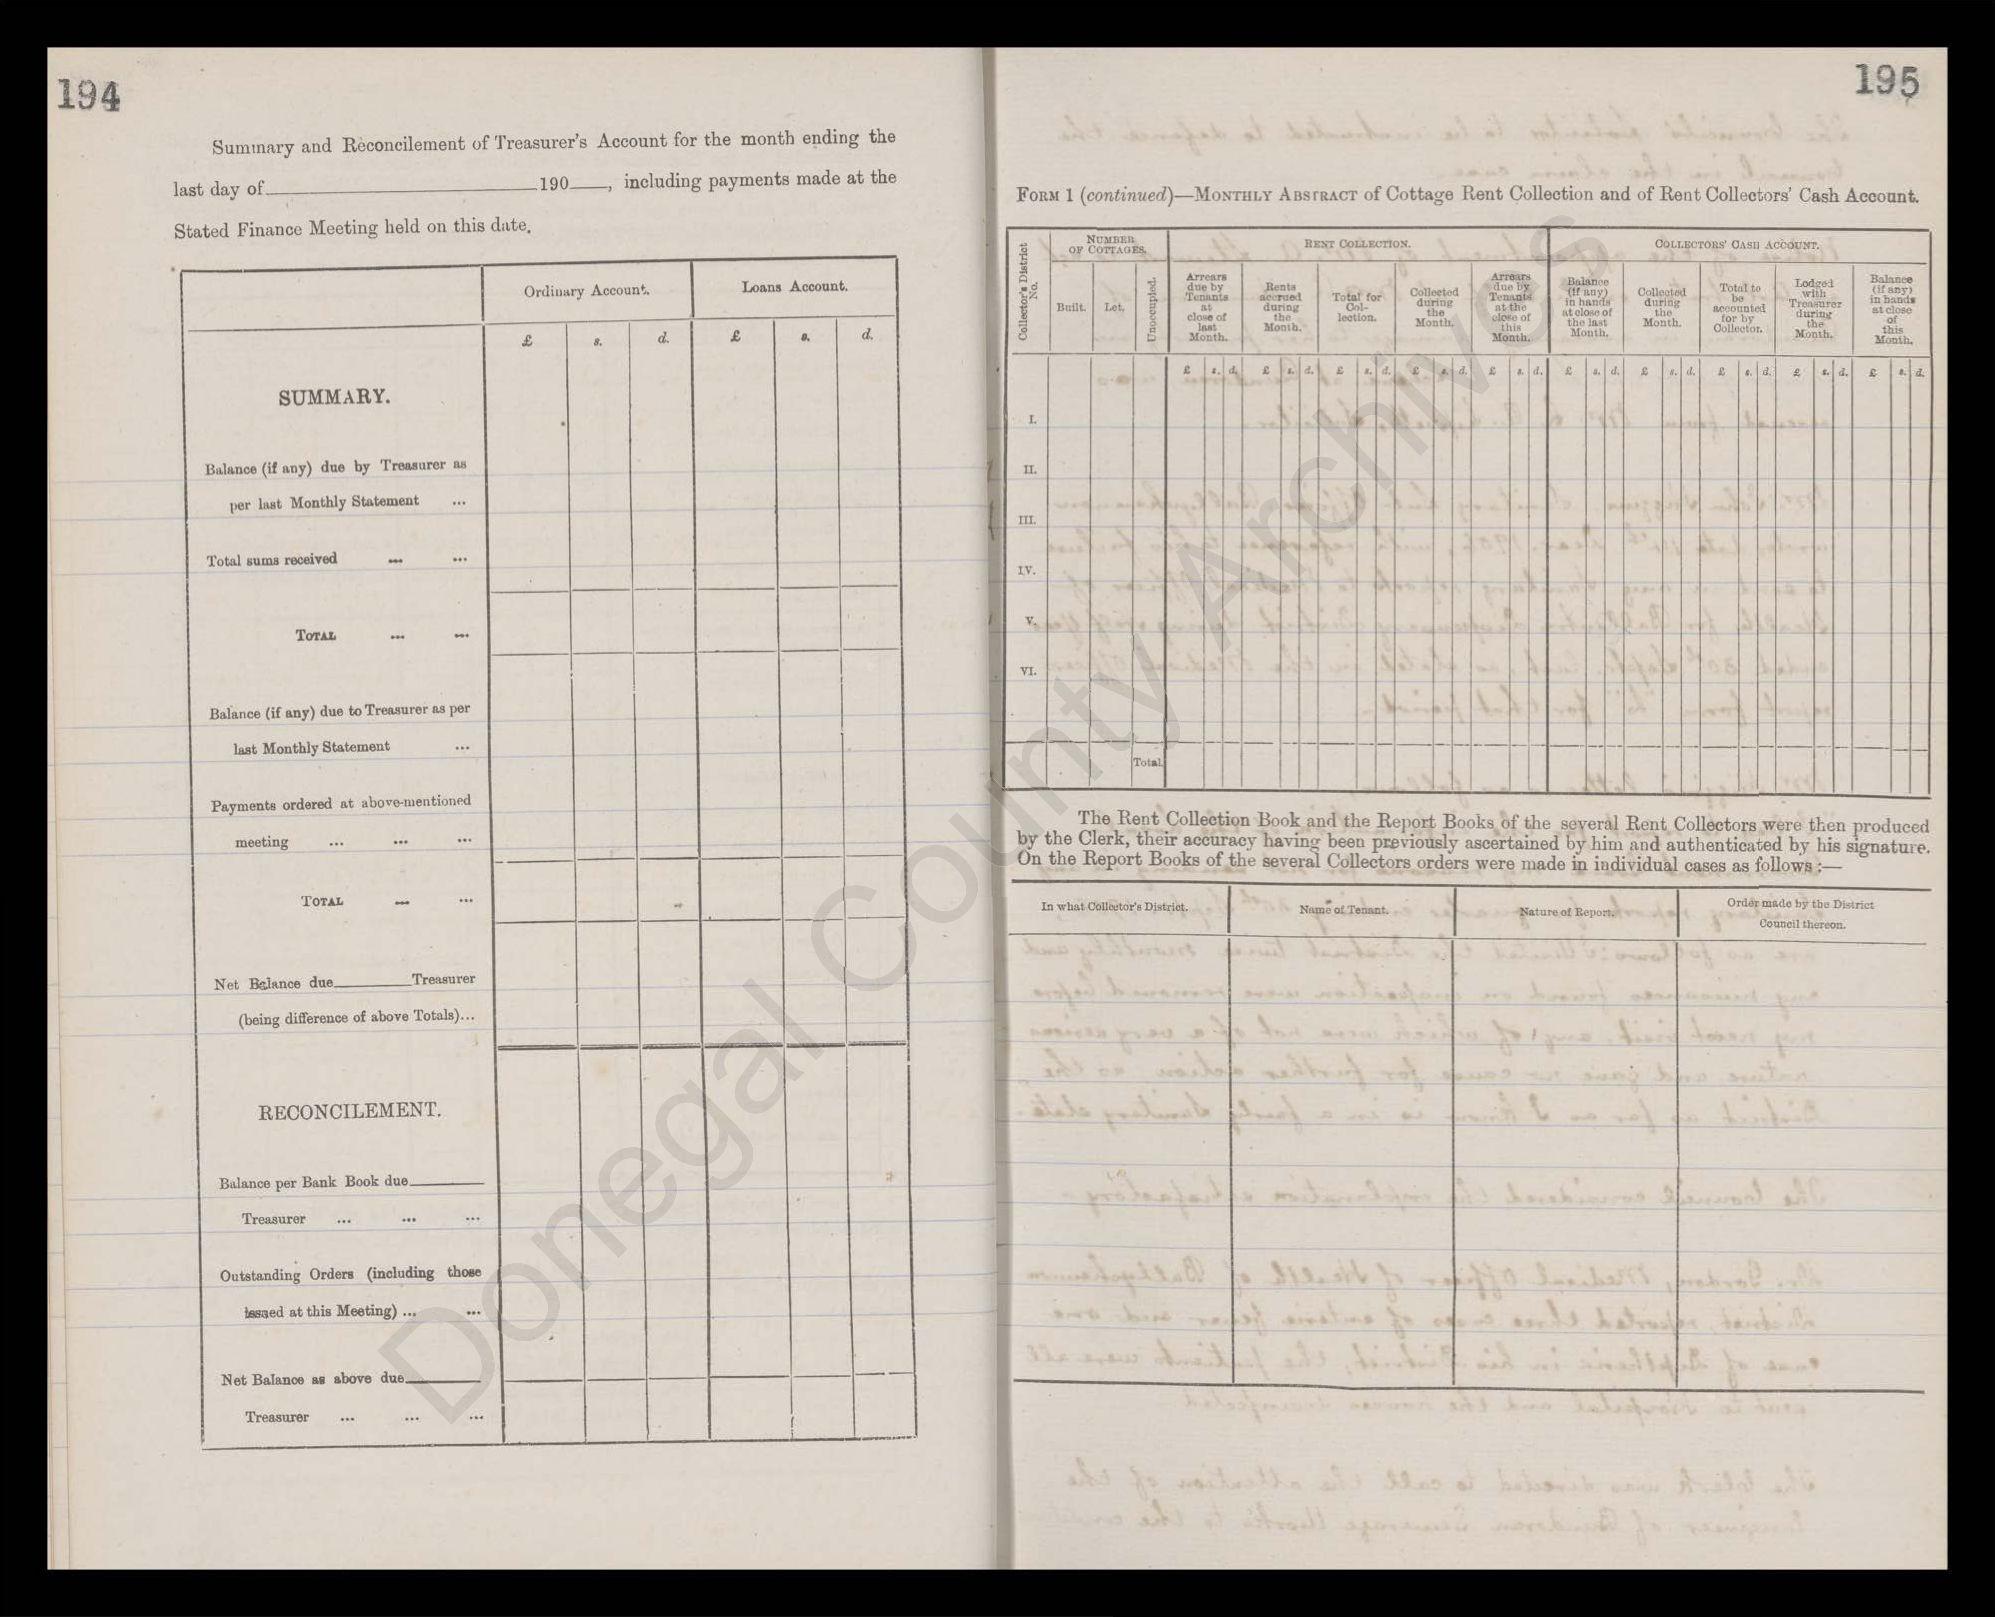 194
Summary and Reconcilement of Treasurer's Account for the month ending the
last day of 190 , including payments made at the
Stated Finance Meeting held on this date.
Ordinary Account. Loans Account.
£ s. d. £ s. d.
SUMMARY.
Balance (if any) due by Treasurer as
per last Monthly Statement ...
Total sums received ... ...
TOTAL ... ...
Balance (if any) due to Treasurer as per
last Monthly Statement ...
Payments ordered at above-mentioned
meeting ... ... ...
TOTAL ... ...
Net Balance due Treasurer
(being difference of above Totals)...
RECONCILEMENT.
Balance per Bank Book due
Treasurer ... ... ...
Outstanding Orders (including those
issued at this Meeting) ... ...
Net Balance as above due
Treasurer ... ... ...
195
FORM 1 (continued)—MONTHLY ABSTRACT of Cottage Rent Collection and of Rent Collectors' Cash Account.
Collector's District No.
NUMBER OF COTTAGES.
RENT COLLECTION.
COLLECTORS' CASH ACCOUNT.
Built.
Let.
Unoccupied.
Arrears due by Tenants at close of last Month.
Rents accrued during the Month.
Total for Collection.
Collected during the Month.
Arrears due by Tenants at the close of this Month.
Balance (if any) in hands at close of the last Month.
Collected during the Month.
Total to be accounted for by Collector.
Lodged with Treasurer during the Month.
Balance (if any) in hands at close of this Month.
£ s. d. £ s. d. £ s. d. £ s. d. £ s. d. £ s. d. £ s. d. £ s. d. £ s. d. £ s. d.
I.
II.
III.
IV.
V.
VI.
Total
The Rent Collection Book and the Report Books of the several Rent Collectors were then produced
by the Clerk, their accuracy having been previously ascertained by him and authenticated by his signature.
On the Report Books of the several Collectors orders were made in individual cases as follows :—
In what Collector's District. Name of Tenant. Nature of Report. Order made by the District
Council thereon.
Donegal County Archives